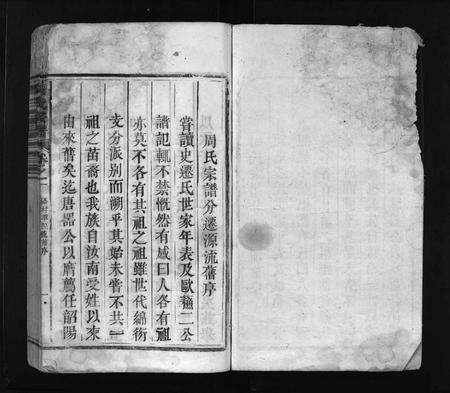 周氏宗譜分遷源流舊序
嘗讀史遷氏世家年表及歐蘇二公
譜記輒不禁慨然有感曰人各有祖
亦莫不各有其祖之祖雖世代綿衍
支分派別而溯乎其始未嘗不共一
祖之苗裔也我族自汝南受姓以來
由來舊矣迄唐諱公以膺薦任韶陽